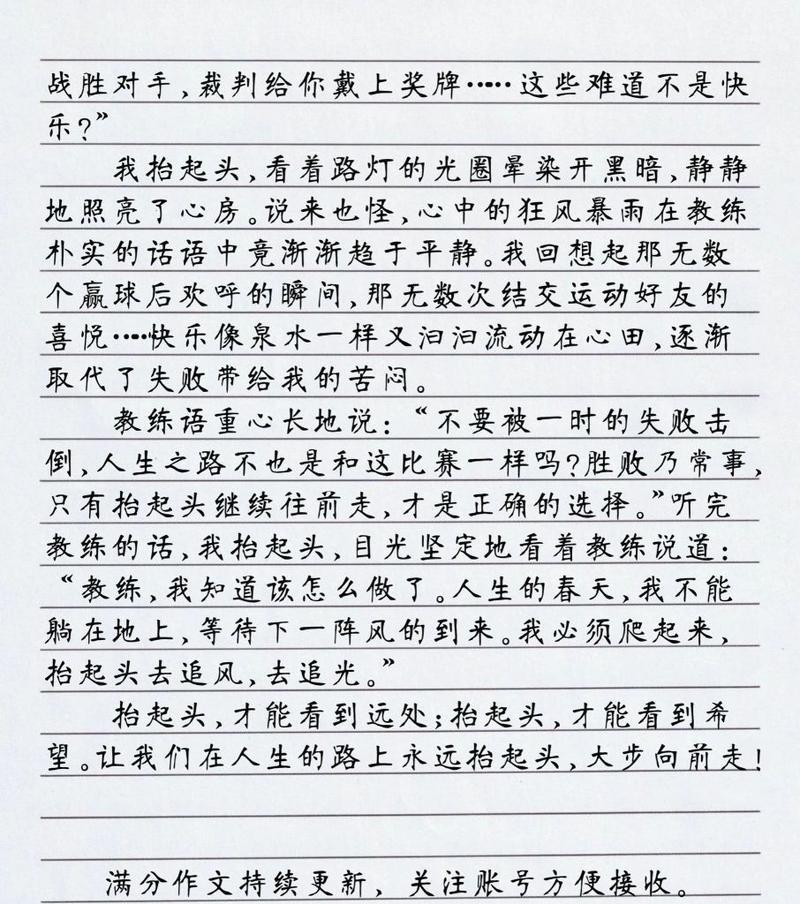 战胜对手，裁判给你戴上奖牌……这些难道不是快
乐？”
我抬起头，看着路灯的光圈晕染开黑暗，静静
地照亮了心房。说来也怪，心中的狂风暴雨在教练
朴实的话语中竟渐渐趋于平静。我回想起那无数
个赢球后欢呼的瞬间，那无数次结交运动好友的
喜悦……快乐像泉水一样又汩汩流动在心田，逐渐
取代了失败带给我的苦闷。
教练语重心长地说：“不要被一时的失败击
倒，人生之路不也是和这比赛一样吗？胜败乃常事，
只有抬起头继续往前走，才是正确的选择。”听完
教练的话，我抬起头，目光坚定地看着教练说道：
“教练，我知道该怎么做了。人生的春天，我不能
躺在地上，等待下一阵风的到来。我必须爬起来，
抬起头去追风，去追光。”
抬起头，才能看到远处；抬起头，才能看到希
望。让我们在人生的路上永远抬起头，大步向前走！
满分作文持续更新，关注账号方便接收。